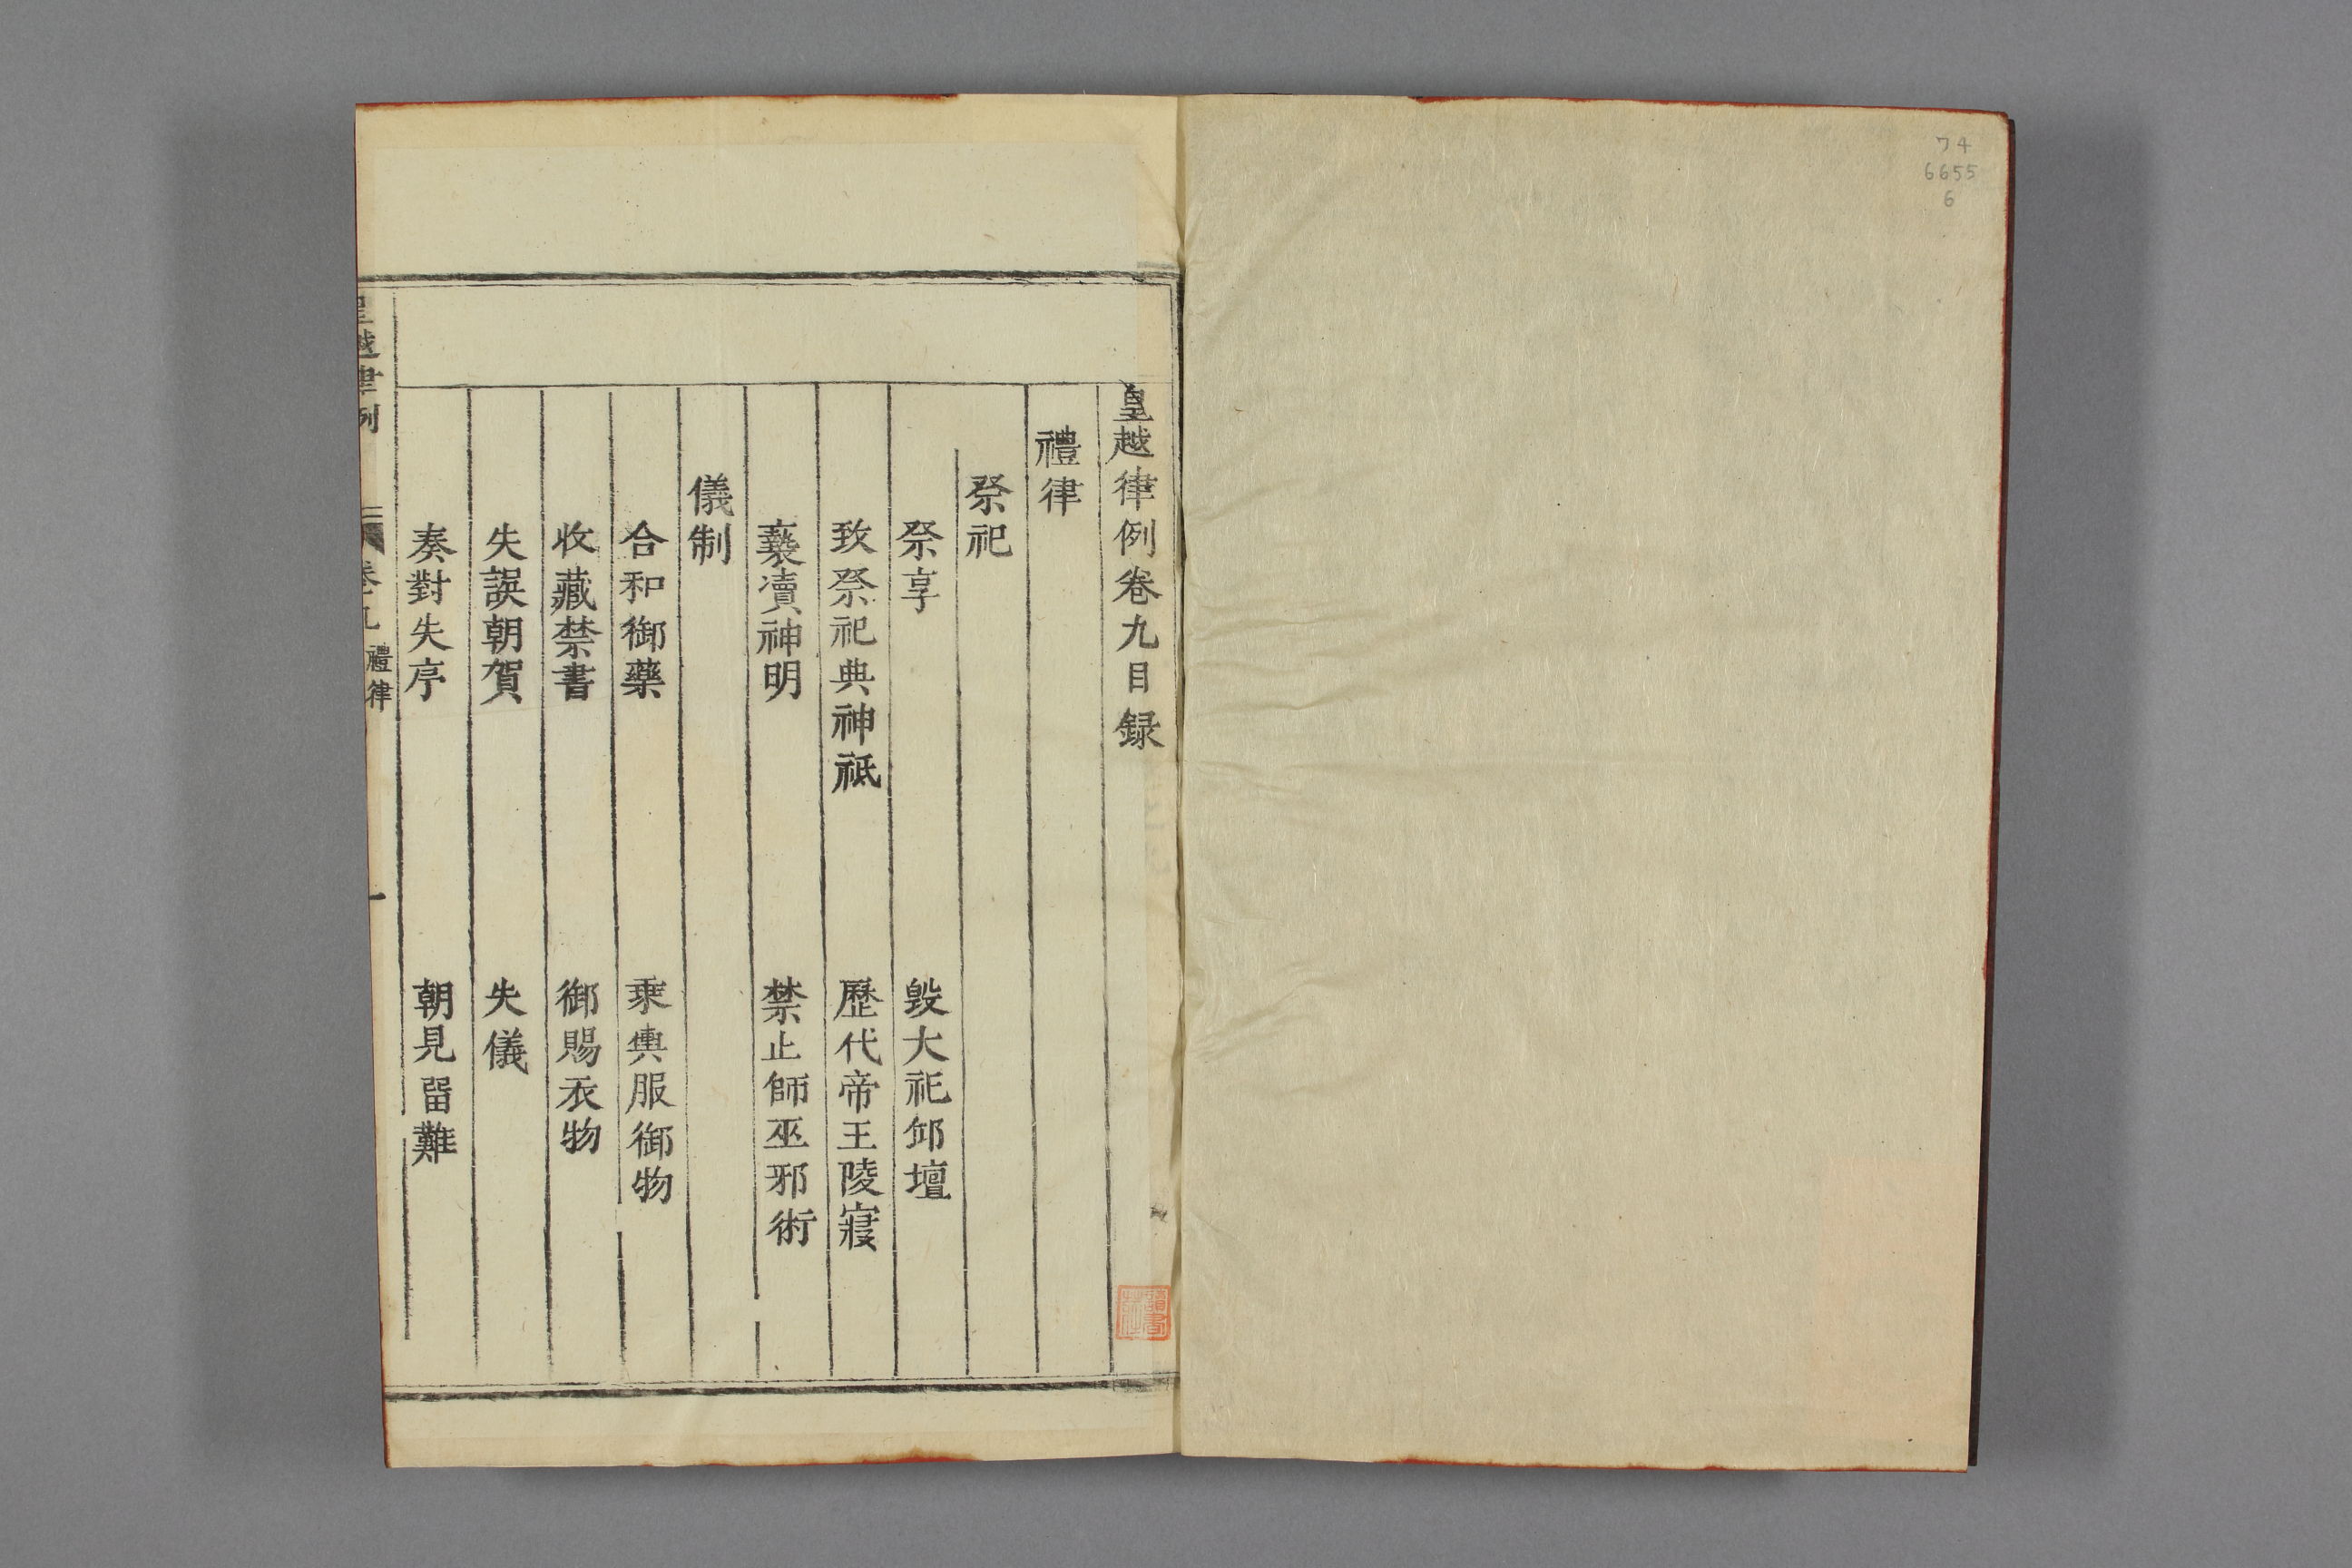 74
6655
6
皇越律例卷九目録
禮律
祭祀
祭享
毀大祀邱壇
致祭祀典神祇
歷代帝王陵寢
褻瀆神明
禁止師巫邪術
儀制
合和御藥
乘輿服御物
收藏禁書
御賜衣物
失誤朝賀
失儀
奏對失序
朝見留難
皇越律例
卷九
禮律
一